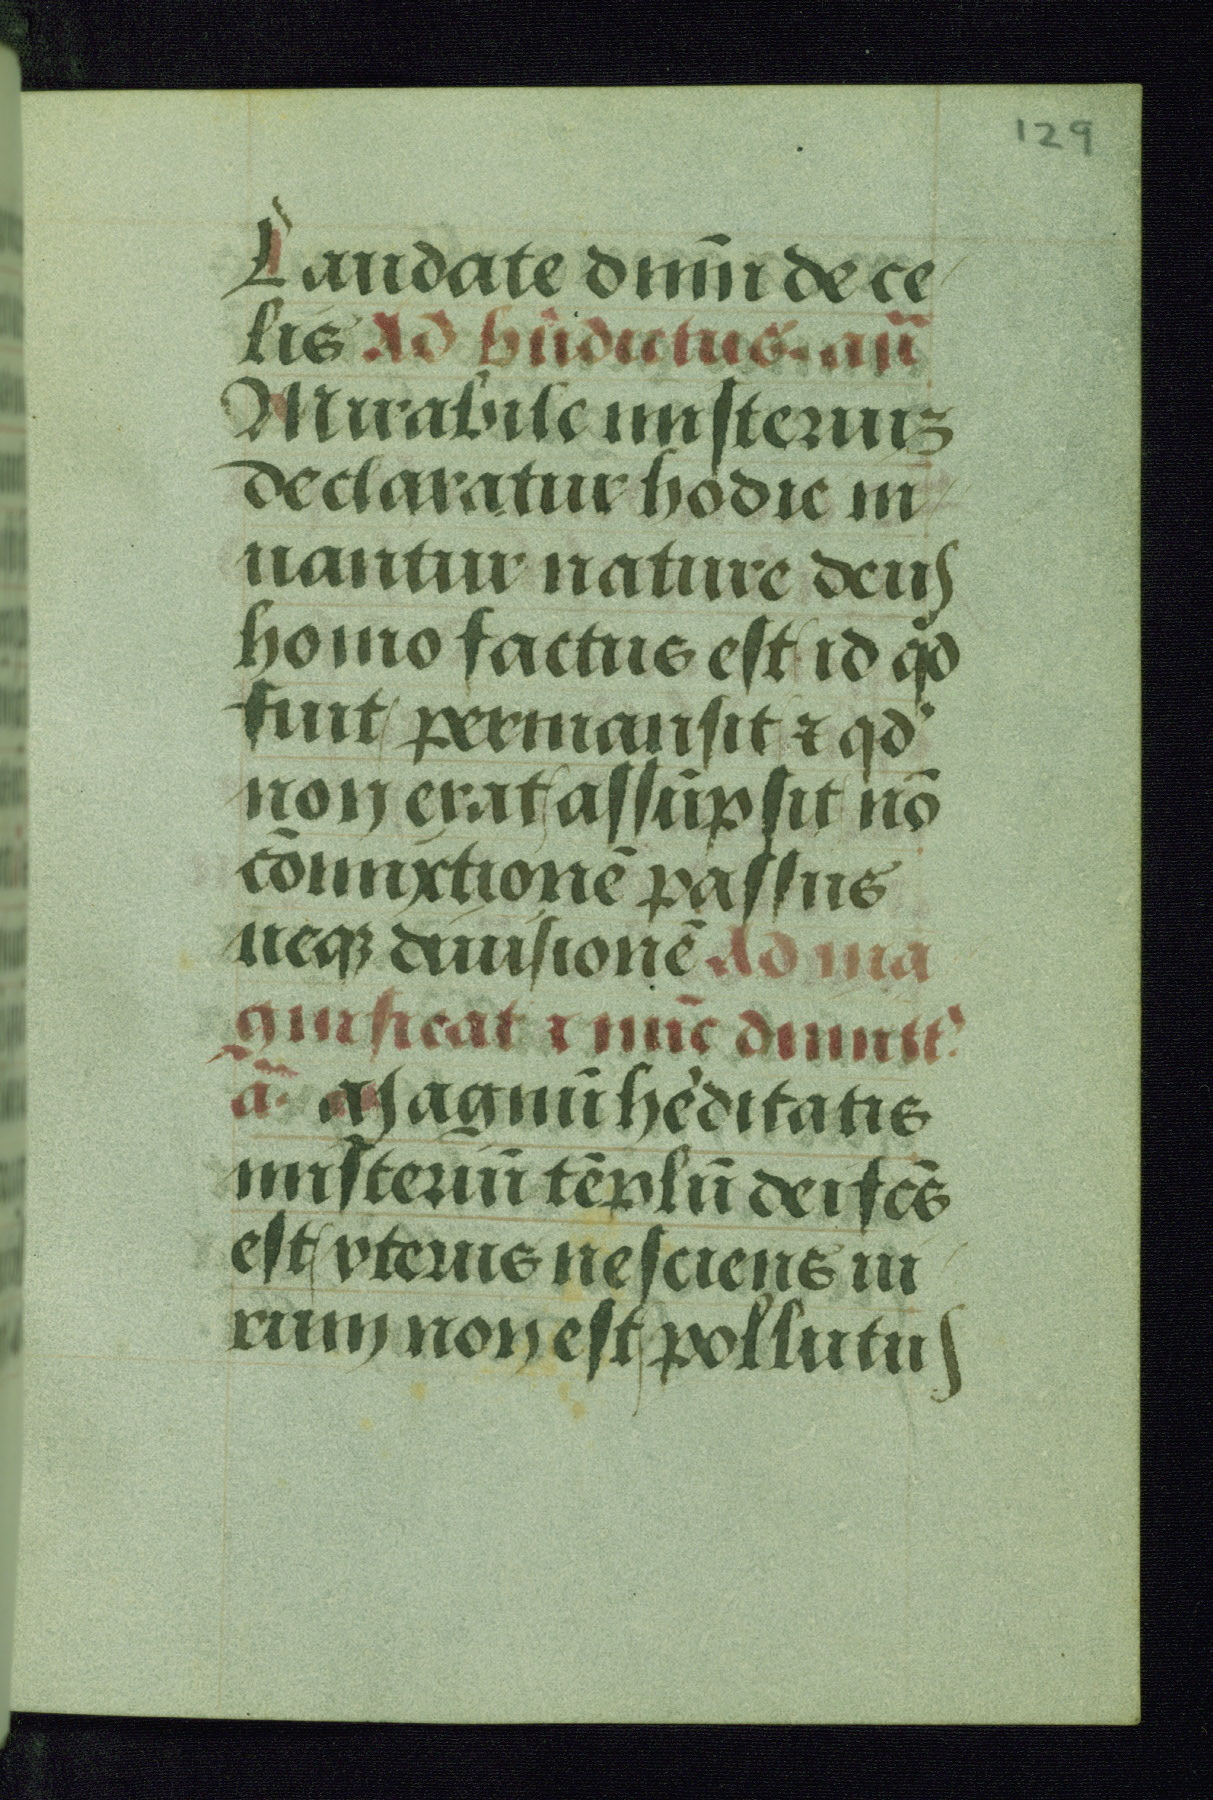 129
Laudate dn̄m de ce
lis Ad bn̄dictus. an̄
Mirabile misteriuȝ
declaratur hodie in
nantur nature deus
homo factus est id qđ
fuit permansit ⁊ qd'
non erat assūpsit nō
cōmixtionē passus
neqȝ diuisionē Ad ma
gnificat ⁊ nūc dimitt'.
ā. Magnū he'ditatis
misteriū tēplū dei fcs̄
est vterus nesciens ui
rum non est pollutus